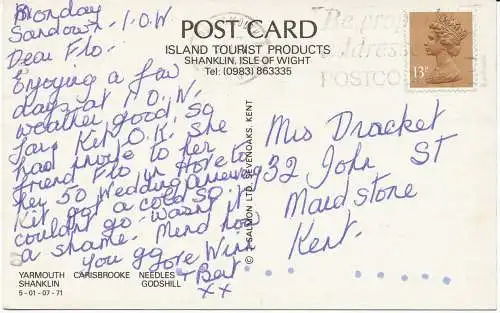 Monday
Sandown. I.O.W
Dear Flo.
Enjoying a few
days at I.O.W.
weather good so
far, Kit O.K. She
had invite to her
friend Flo in Hove to
her 50 Wedding
Kit got a cold so
couldn't go. wasn't it
a shame. Mend now
you Love Winn
+ Bert
xx
POST CARD
ISLAND TOURIST PRODUCTS
SHANKLIN, ISLE OF WIGHT
Tel: (0983) 863335
Be
address
POSTCO
13P
© SALMON LTD., SEVENOAKS, KENT
Mis Dracket
32 John St
Maidstone
Kent.
YARMOUTH CARISBROOKE NEEDLES
SHANKLIN GODSHILL
5-01-07-71